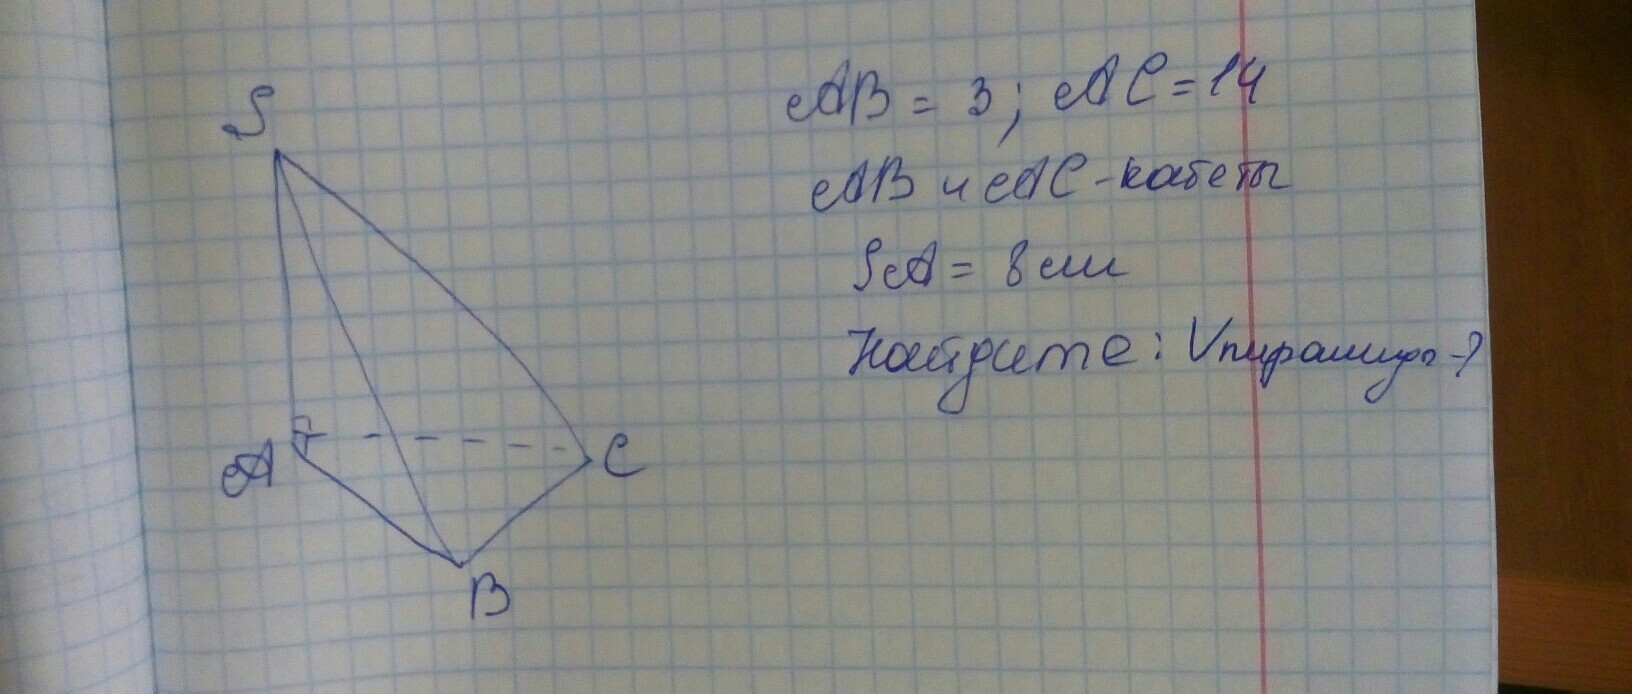 S
A
C
B
AB = 3; AC = 14
AB и AC - катеты
SA = 8 см
Найдите: Vпирамиды - ?